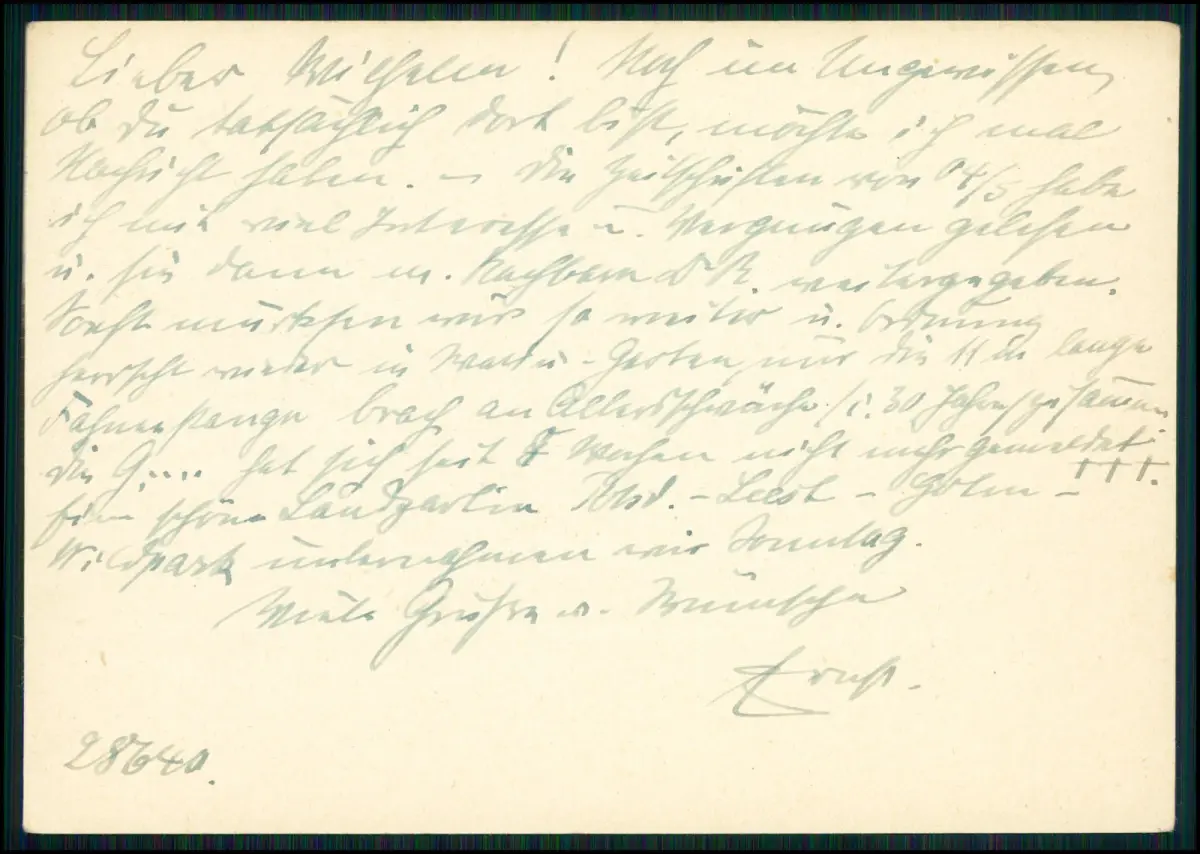 Lieber Wilhelm! Noch im Ungewissen,
ob du tatsächlich dort bist, möchte ich mal
Nachricht haben. – Die Zeitschriften von 04/5 habe
ich mit viel Interesse u. Vergnügen gelesen
u. sie dann m. Nachbarn weitergegeben.
Sonst murksen wir so weiter u. Ordnung
herrscht wieder in u. Garten, nur die 11 m lange
Fahnenstange brach an Altersschwäche /i. 30 Jahre/ zusammen.
die G.... hat sich seit Wochen nicht mehr gemeldet
†††.
Eine schöne Landpartie Potsd. – Leest – Golm –
Wildpark unternahmen wir Sonntag.
Viele Grüße u. Wünsche
Ernst.
28640.